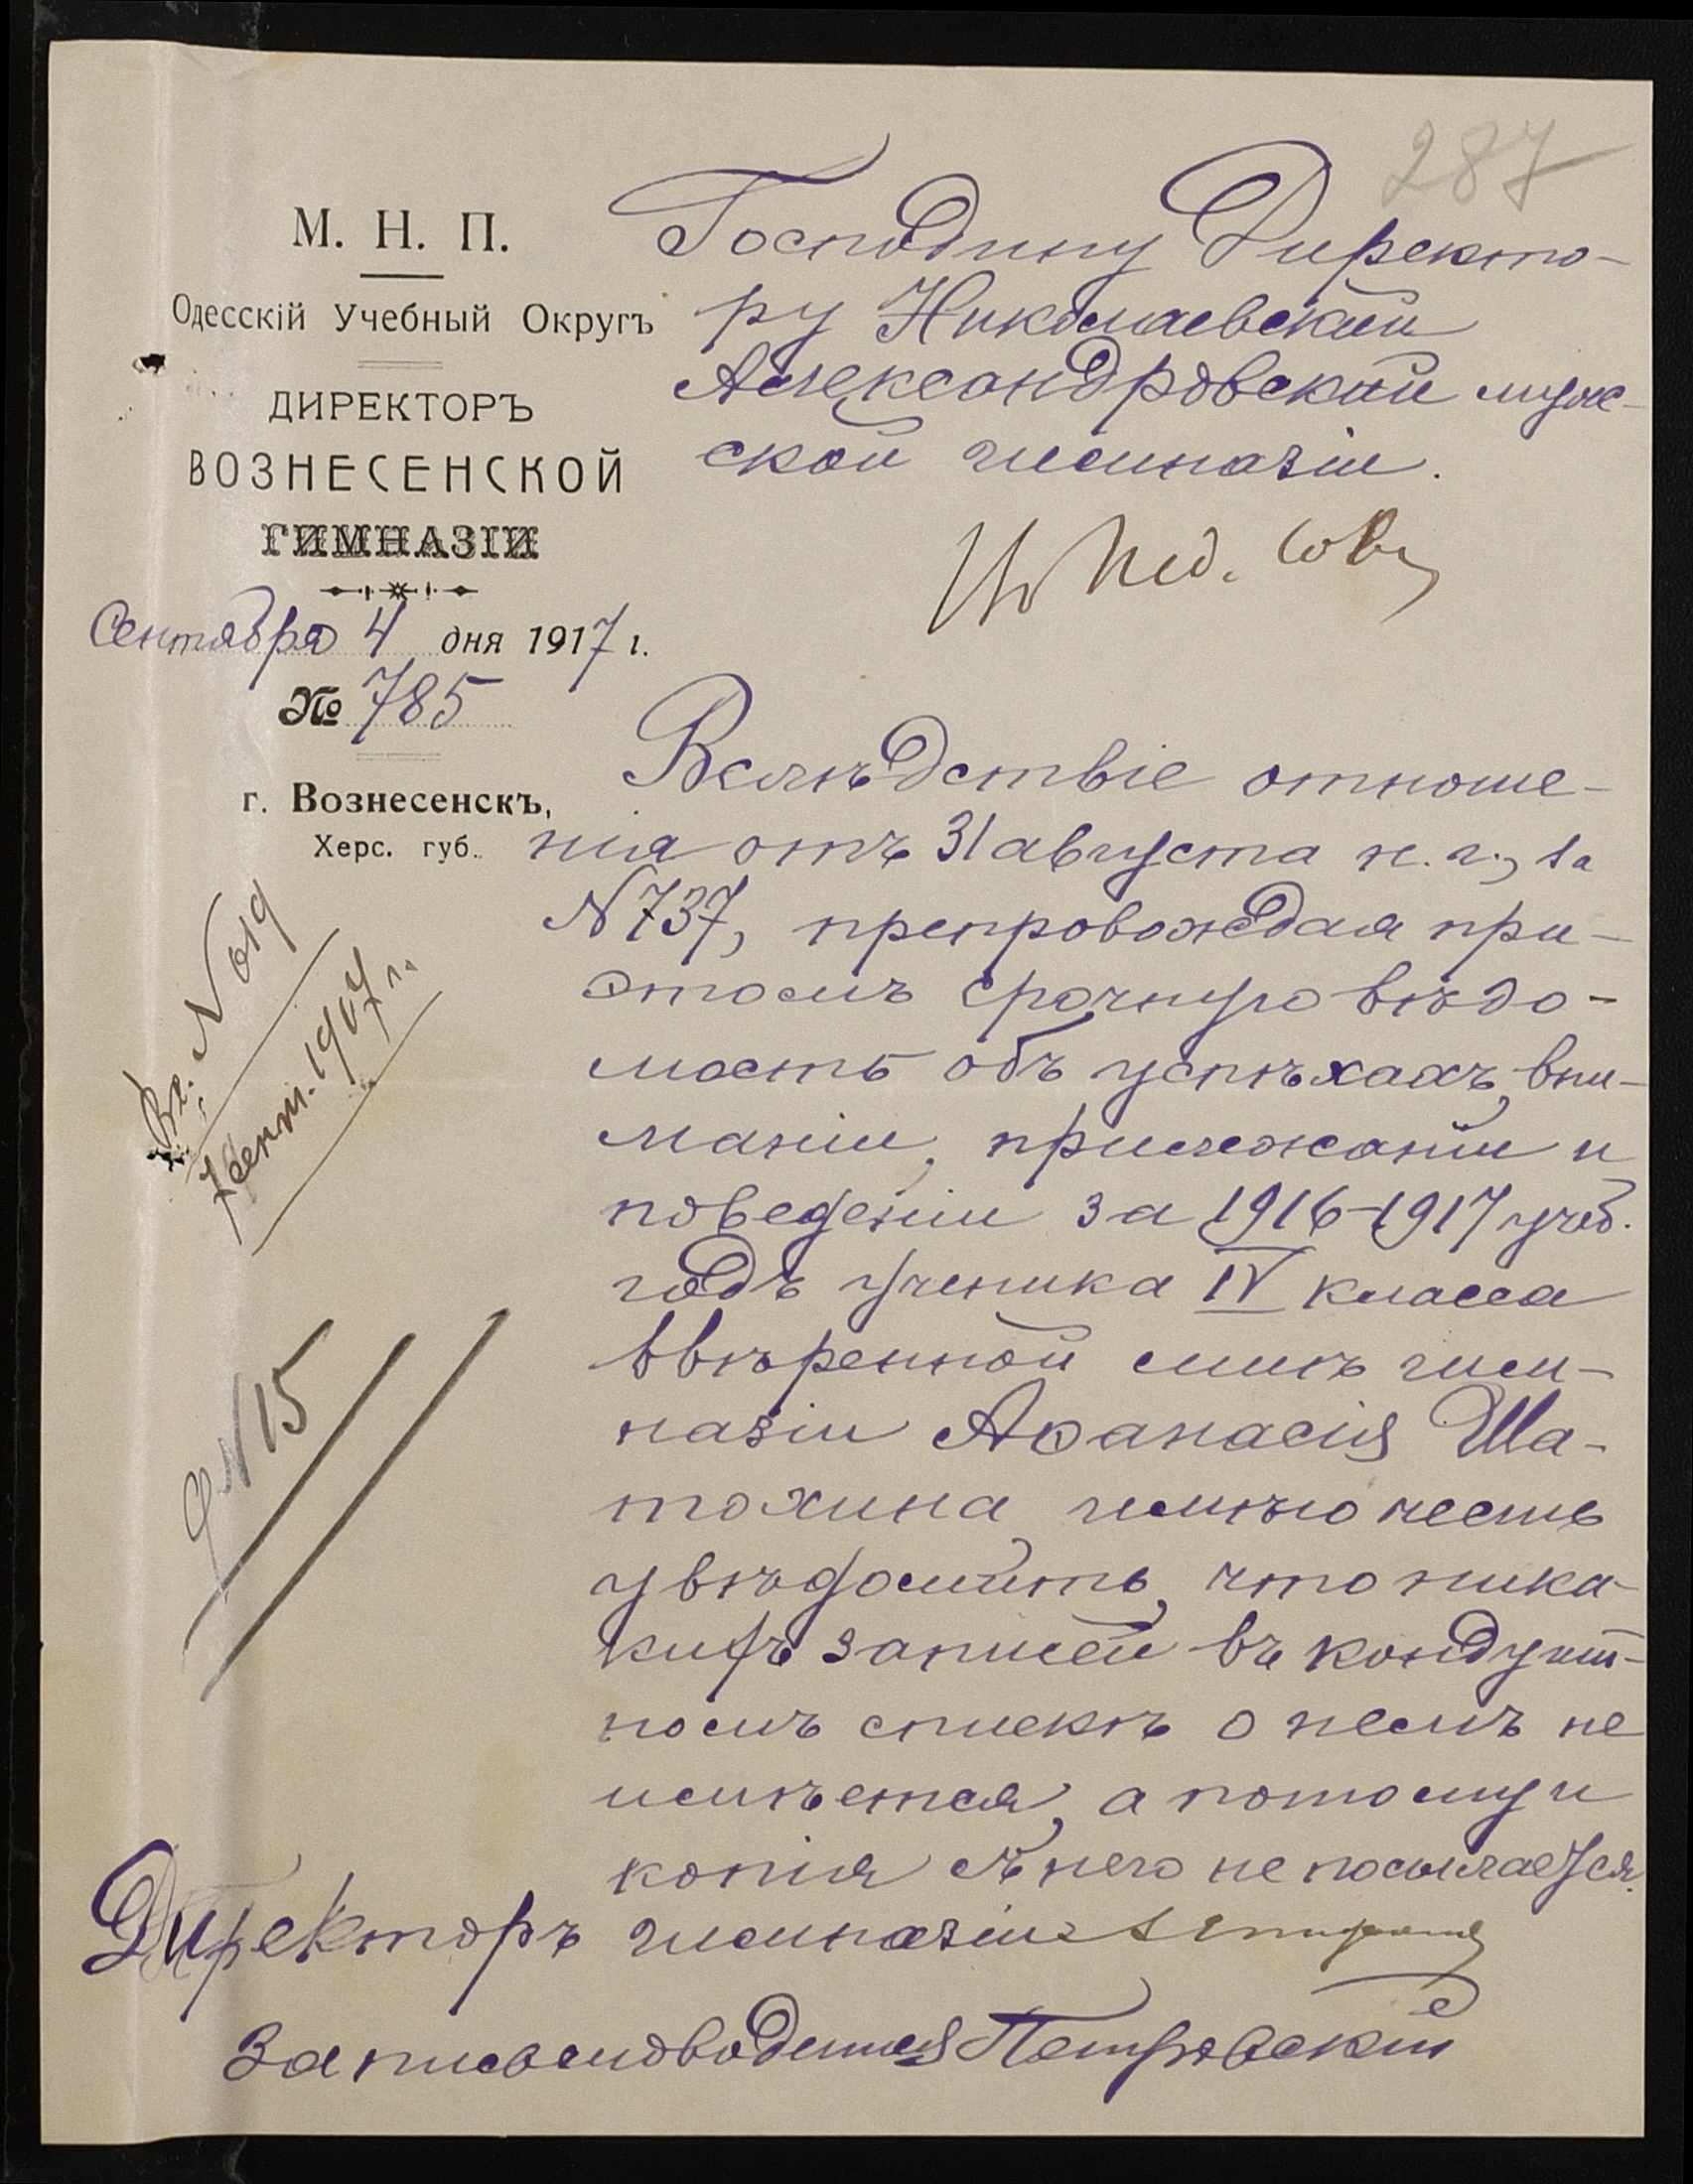 287
М. Н. П.
Одесскій Учебный Округъ
ДИРЕКТОРЪ
ВОЗНЕСЕНСКОЙ
ГИМНАЗІИ
Сентября 4 дня 1917 г.
№ 785
г. Вознесенскъ,
Херс. губ.
Господину Директо-
ру Николаевской
Александровской муж-
ской гимназіи.
Пед. Сов.
Вслѣдствіе отноше-
нія отъ 31 августа н. г., за
N 737, препровождая при-
этомъ срочную вѣдо-
мость объ успѣхахъ, вни-
маніи, прилежаніи и
поведеніи за 1916-1917 учеб.
годъ ученика IV класса
ввѣренной мнѣ гим-
назіи Аѳанасія Ша-
тохина, имѣю честь
увѣдомить, что ника-
кихъ записей въ кондуит-
номъ спискѣ о немъ не
имѣется, а потому и
копія съ него не посылается.
Директоръ гимназіи
За письмоводителя Петровскій
Вх. N 619
7 сент. 1917 г.
N 15